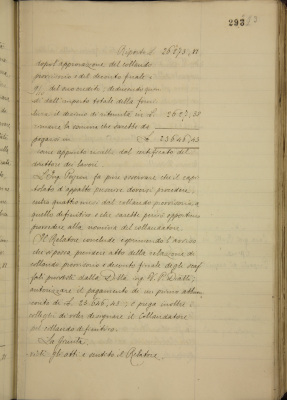 293
Riporto £ 26273,
dopo l'approvazione del collaudo
provvisorio e del decreto finale
del suo credito, deducendo quin
di dall'importo totale della forni
tura il decimo di ritenuta in £. 2627,
rimane la somma che sarebbe da
pagarsi in £. 23646,
come appunto risulta dal certificato del
direttore dei lavori.
L'Ing. fa pure osservare che il capi
tolato d'appalto prescrive doversi procedere
entro quattro mesi dal collaudo provvisorio a
quello definitivo e che sarebbe perciò opportuno
procedere alla nomina del collaudatore.
Il Relatore conclude esprimendo l'avviso
che si possa prendere atto della relazione di
collaudo provvisorio e decreto finale degli scaf
fali prodotti dalla Ditta
autorizzare il pagamento di un primo
conto di £. 23.646, e prega inoltre i
colleghi di voler designare il Collaudatore
pel collaudo definitivo.
La Giunta
visti gli atti e sentito il Relatore